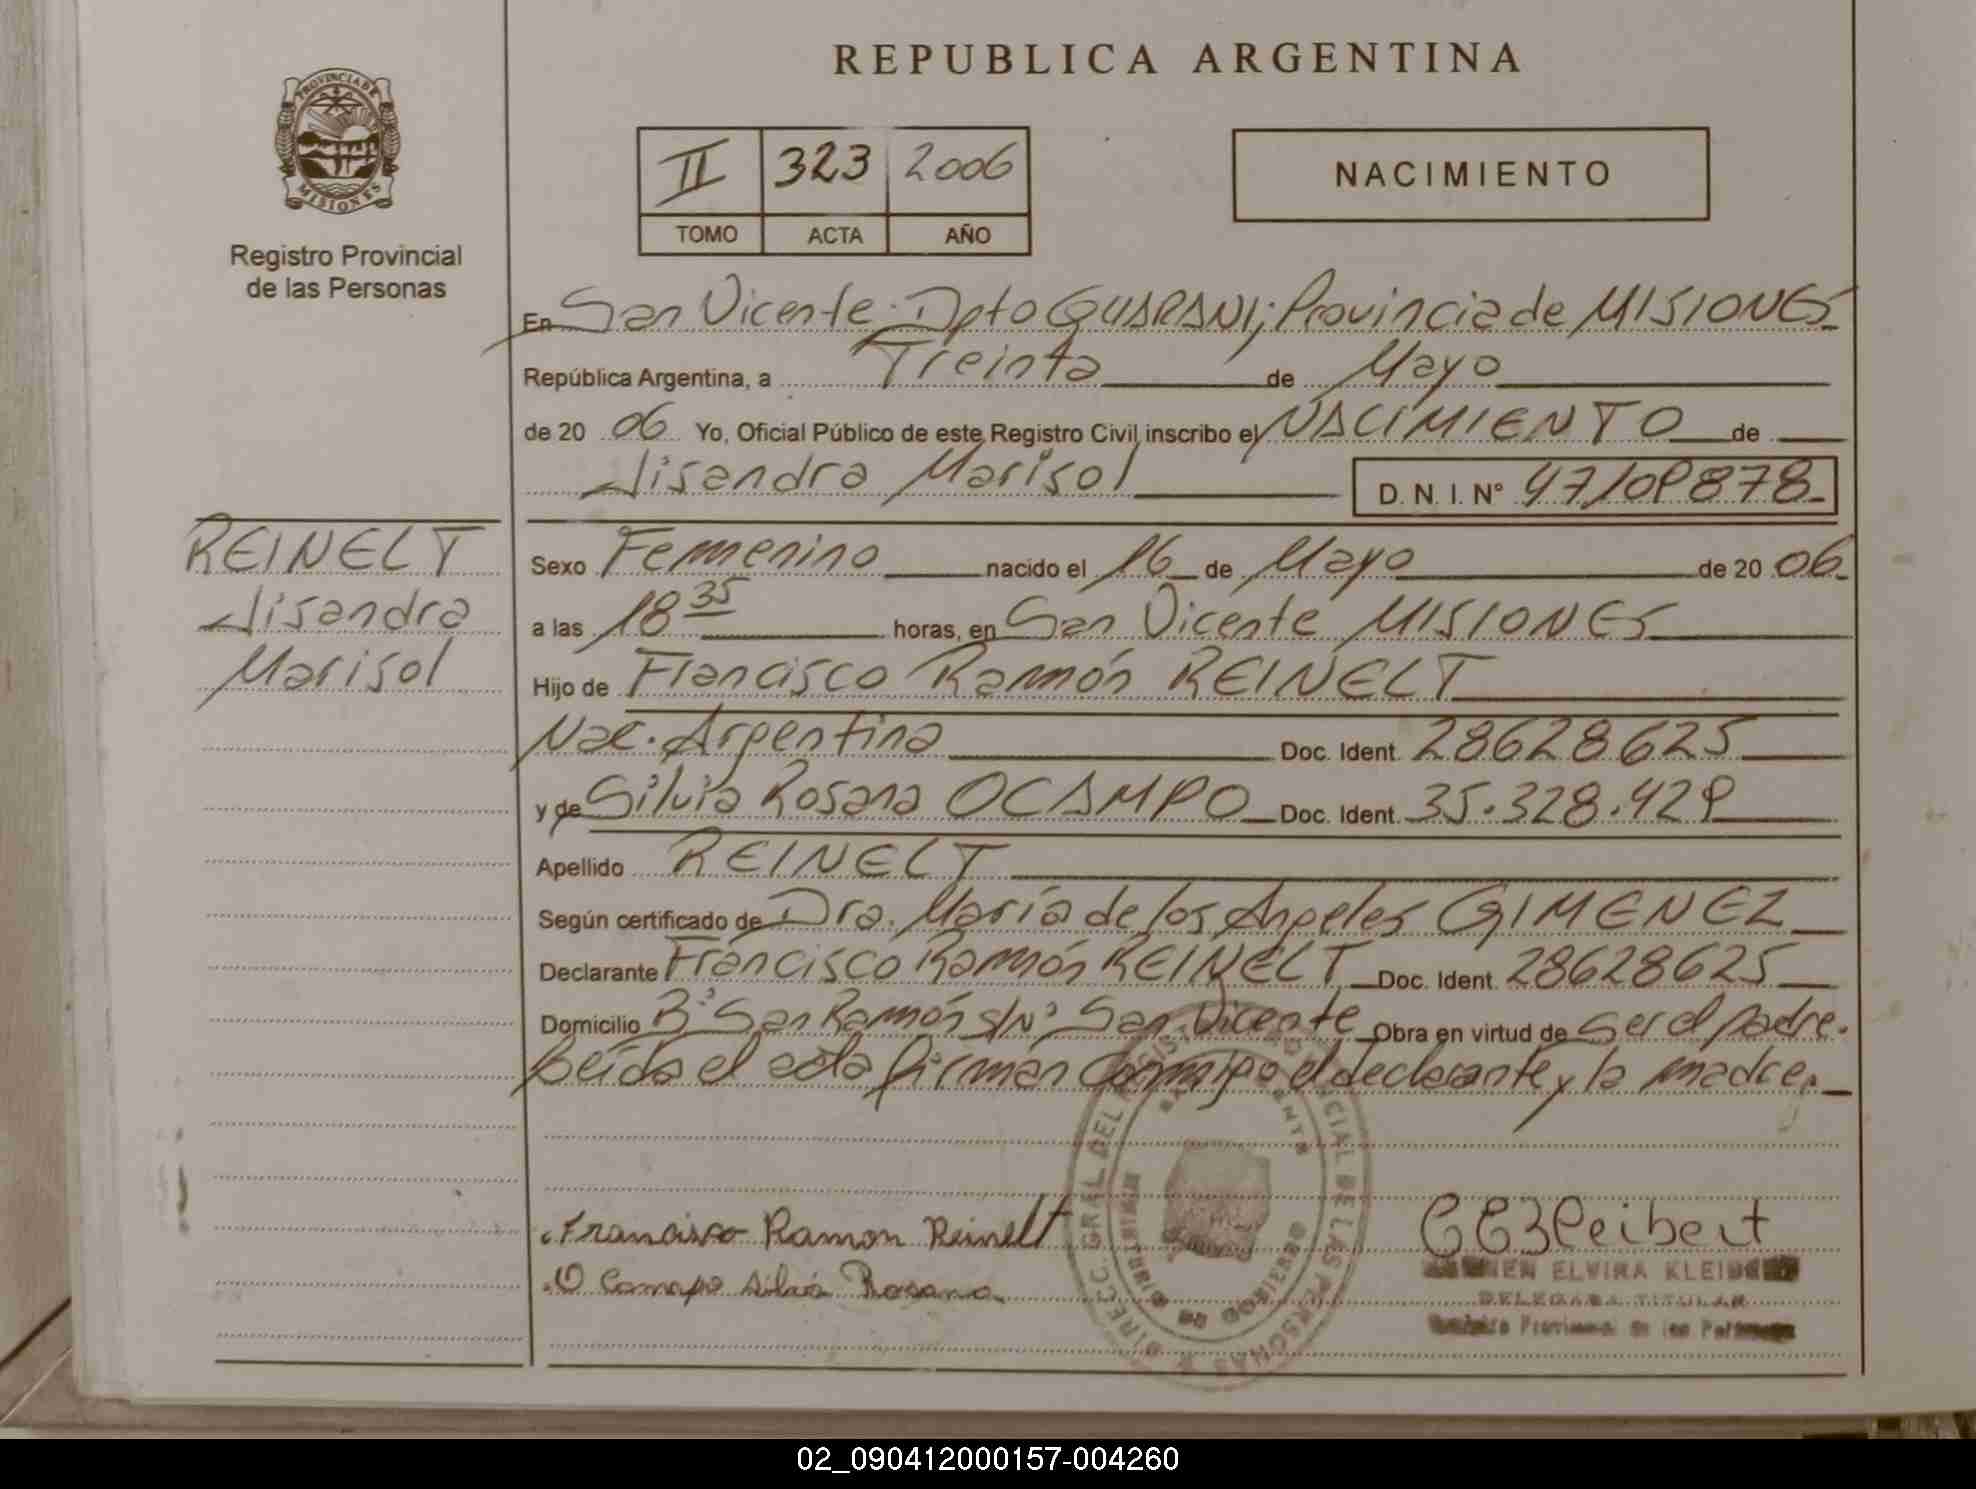 REPUBLICA ARGENTINA
PROVINCIA DE MISIONES
Registro Provincial
de las Personas
II 323 2006
TOMO ACTA AÑO
NACIMIENTO
En San Vicente. Dpto GUARANI; Provincia de MISIONES
República Argentina, a Treinta de Mayo
de 20 06 Yo, Oficial Público de este Registro Civil inscribo el NACIMIENTO de
Lisandra Marisol D. N. I. Nº 47109878
REINELT
Lisandra
Marisol
Sexo Femenino nacido el 16 de Mayo de 20 06
a las 18 35 horas, en San Vicente MISIONES
Hijo de Francisco Ramón REINELT
Nac. Argentina Doc. Ident. 28628625
y de Silvia Rosana OCAMPO Doc. Ident. 35.328.429
Apellido REINELT
Según certificado de Dra. María de los Angeles GIMENEZ
Declarante Francisco Ramón REINELT Doc. Ident. 28628625
Domicilio Bº San Ramón s/Nº San Vicente Obra en virtud de ser el padre.
Leída el acta firman conmigo el declarante y la madre.
Francisco Ramon Reinelt
O Campo Silvia Rosana
DIRECC. GRAL. DEL REGISTRO PROVINCIAL DE LAS PERSONAS
ELVIRA
DELEGADA TITULAR
Registro Provincial de las Personas
02_090412000157-004260